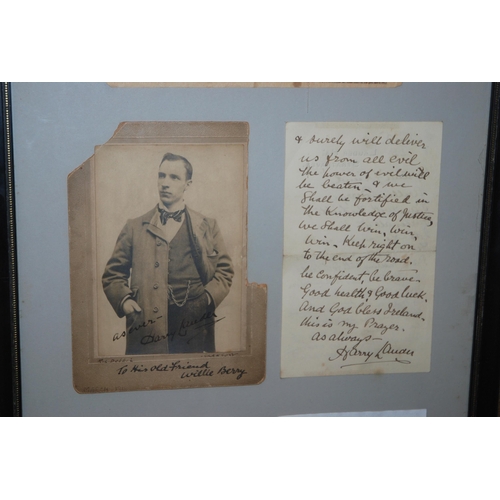 as ever
Harry Lauder
To His old Friend
Willie Berry
& surely will deliver
us from all evil
the power of evil will
be beaten - & we
shall be fortified in
the Knowledge of Justice,
We Shall Win, Win,
Win - Keep right on
to the end of the road.
be Confident, be brave -
Good health & Good luck.
And God bless Ireland -
this is my Prayer.
As always -
Harry Lauder